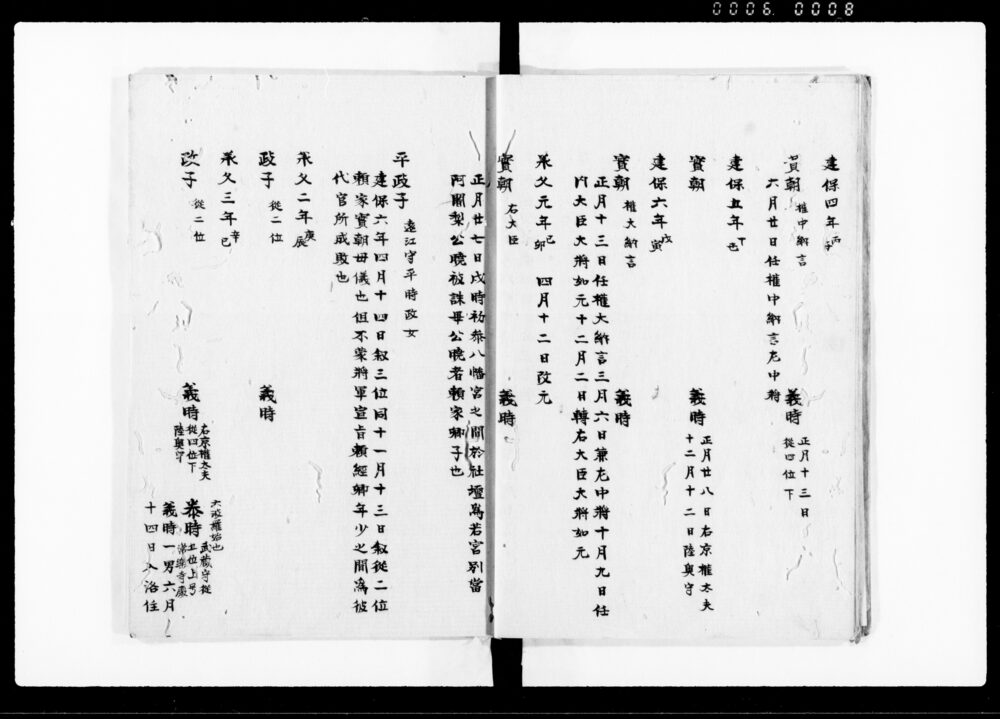 0006 0008
建保四年丙子
實朝 權中納言
六月廿日任權中納言左中將
義時 正月十三日
從四位下
建保五年丁丑
實朝
義時 正月廿八日右京權太夫
十二月十二日陸奥守
建保六年戊寅
實朝 權大納言
義時
正月十三日任權大納言三月六日兼左中將十月九日任
内大臣大將如元十二月二日轉右大臣大將如元
承久元年己卯 四月十二日改元
實朝 右大臣
義時
正月廿七日戌時初参八幡宮之間於社壇爲若宮別當
阿闍梨公曉被誅畢公曉者頼家卿子也
平政子 遠江守平時政女
建保六年四月十四日叙三位同十一月十三日叙從二位
頼家實朝母儀也但不蒙將軍宣旨頼經卿年少之間爲彼
代官所成敗也
承久二年庚辰
政子 從二位
義時
承久三年辛巳
政子 從二位
義時 右京權太夫
從四位下
陸奥守
六波羅始也
泰時 武藏守從
五位上号
常樂寺殿
義時一男六月
十四日入洛住